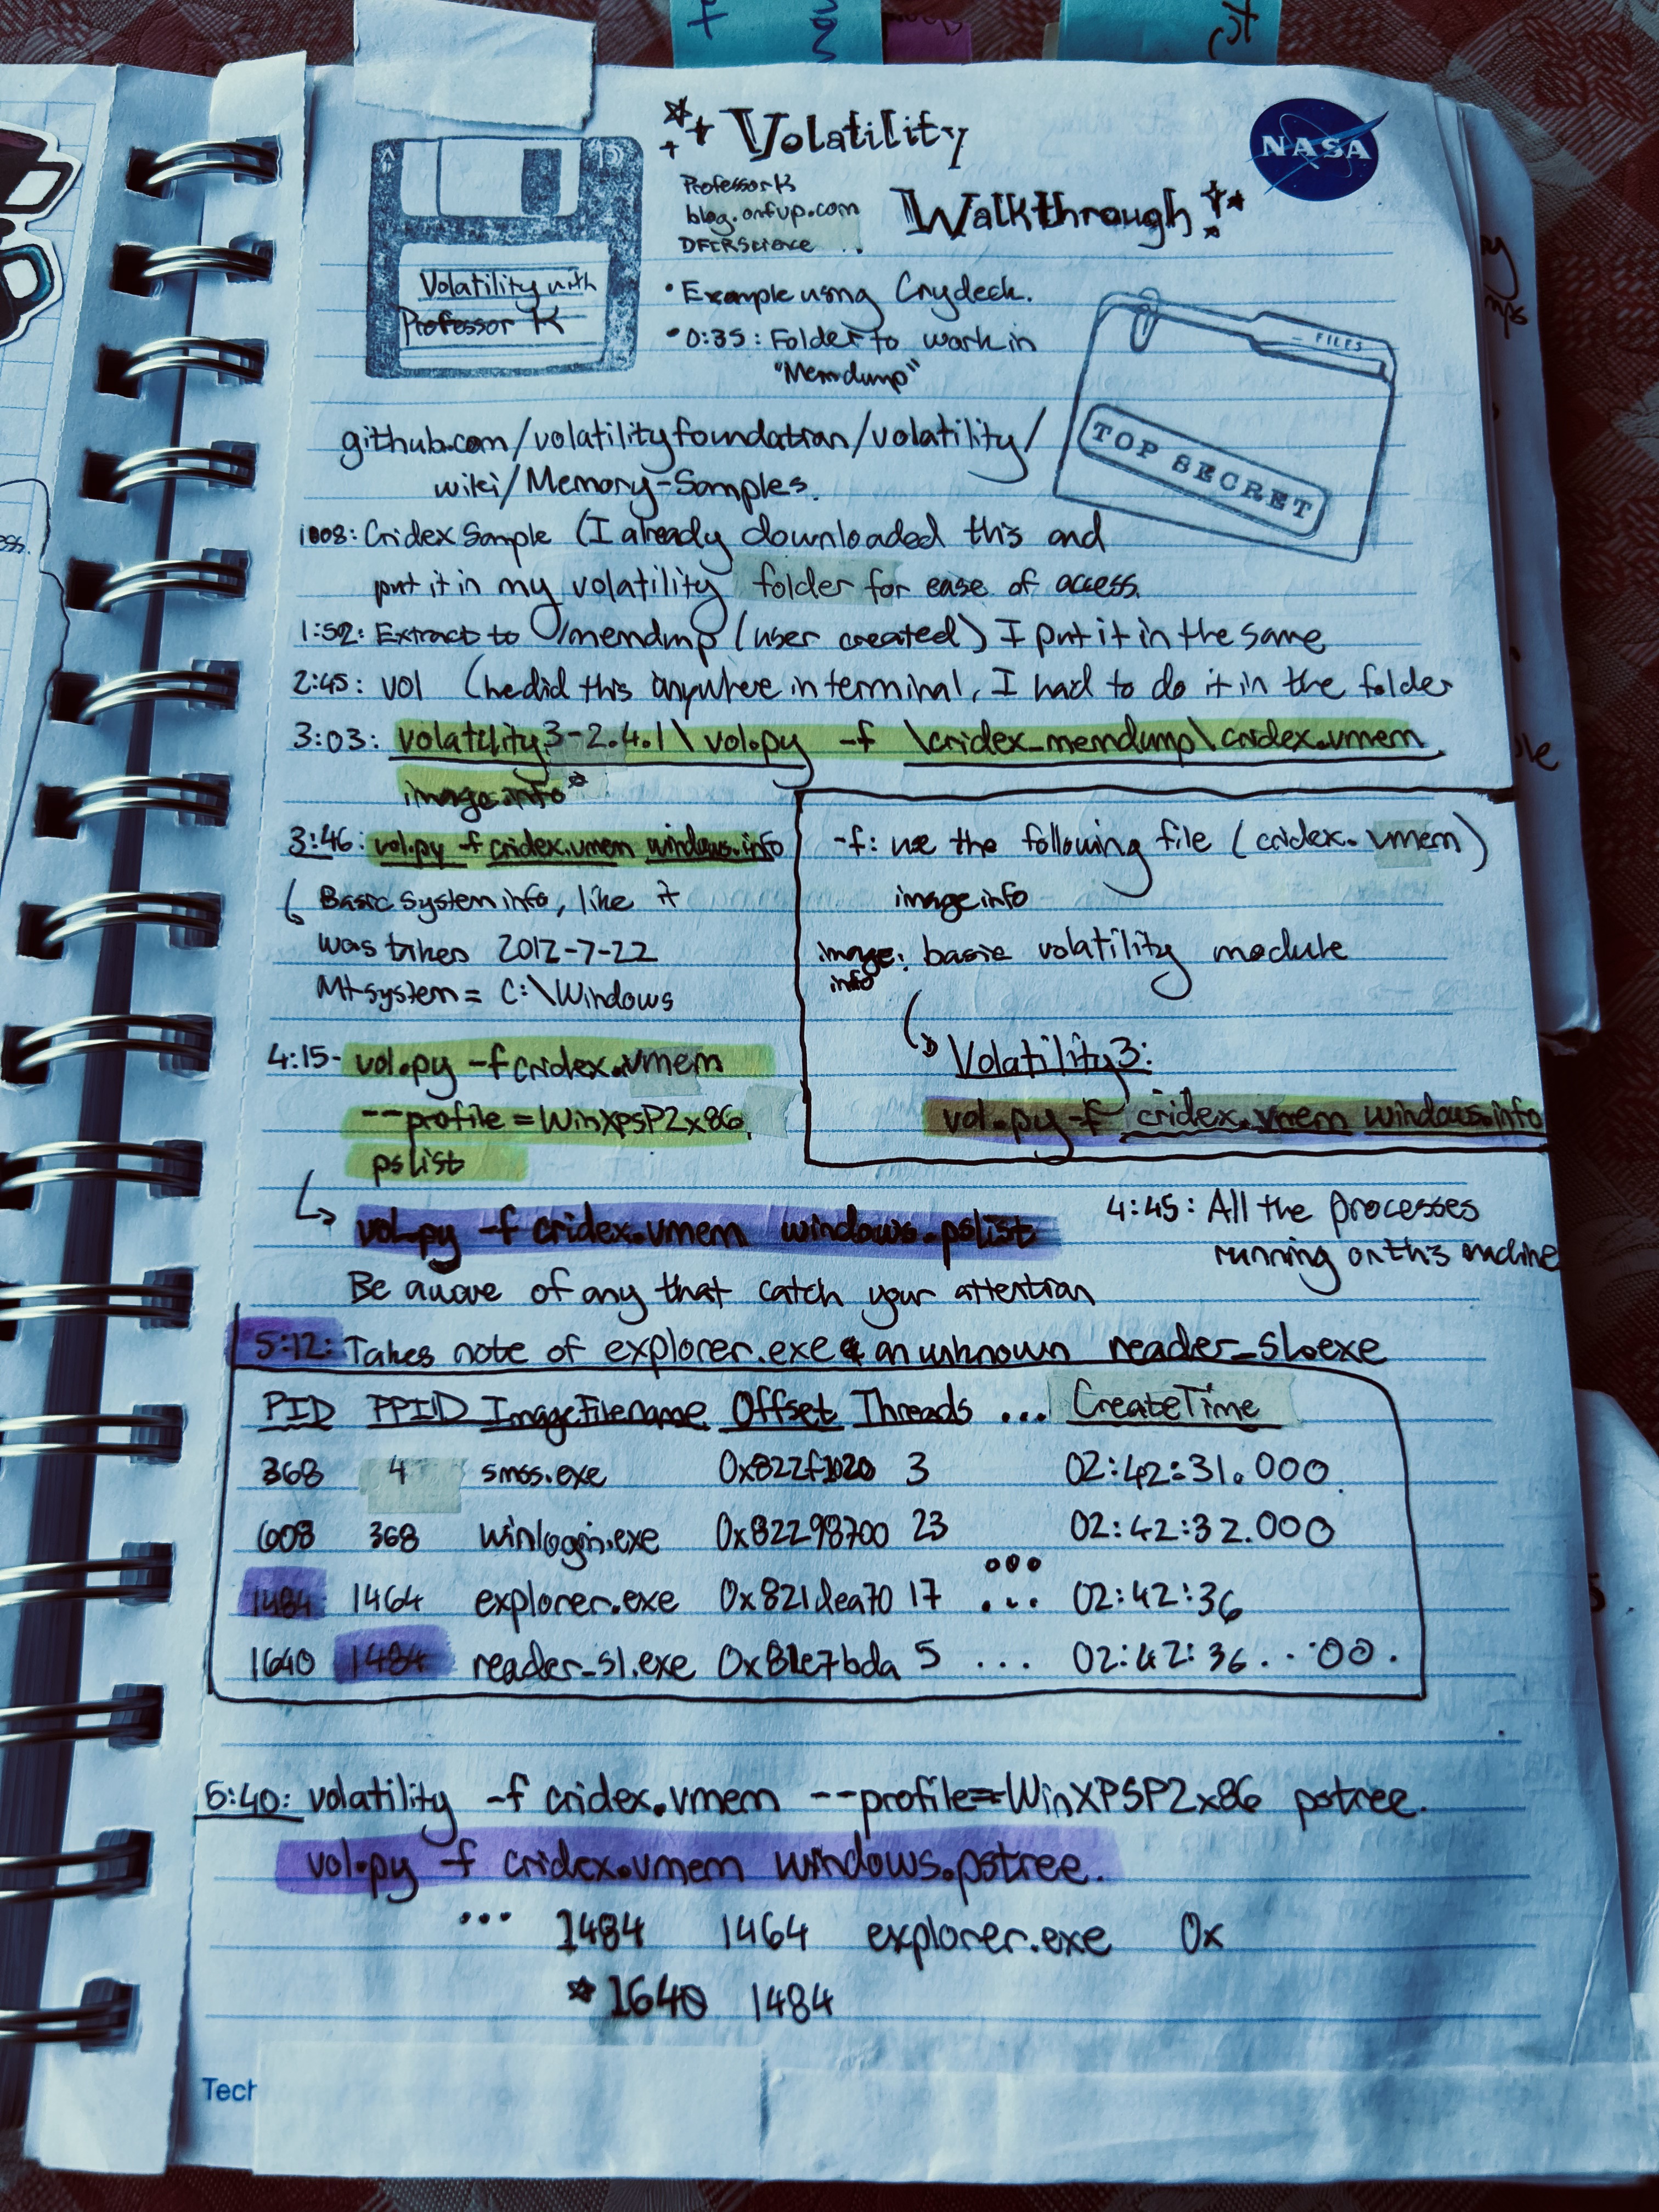 Volatility
Walkthrough
NASA
Professor K
DFIRScience
Volatility with
Professor K
• Example using
• 0:35: Folder to work in
"Memdump"
FILES
TOP SECRET
github.com/volatilityfoundation/volatility/
wiki/Memory-Samples.
1:08: Cridex Sample (I already downloaded this and
put it in my volatility folder for ease of access.
1:52: Extract to /memdmp (user created) I put it in the same
2:45: vol (he did this anywhere in terminal, I had to do it in the folder
3:03: volatility3-2.4.1\vol.py -f \cridex_memdump\cridex.vmem
imageinfo*
3:46: vol.py -f cridex.vmem windows.info
Basic system info, like it
was taken 2012-7-22
Nt system = C:\Windows
-f: use the following file (cridex.vmem)
imageinfo
image: basic volatility module
info
Volatility3:
vol.py -f cridex.vmem windows.info
4:15- vol.py -f cridex.vmem
--profile=WinXPSP2x86
pslist
vol.py -f cridex.vmem windows.pslist
4:45: All the processes
running on this machine
Be aware of any that catch your attention
5:12: Takes note of explorer.exe & an unknown reader_sl.exe
PID PPID ImageFilename Offset Threads ... CreateTime
368 4 smss.exe 0x822f1020 3 02:42:31.000
608 368 winlogin.exe 0x82298700 23 02:42:32.000
1484 1464 explorer.exe 0x821dea70 17 ... 02:42:36
1640 1484 reader_sl.exe 0x81e7bda 5 ... 02:42:36...00.
5:40: volatility -f cridex.vmem --profile=WinXPSP2x86 pstree.
vol.py -f cridex.vmem windows.pstree.
... 1484 1464 explorer.exe 0x
* 1640 1484
Tech